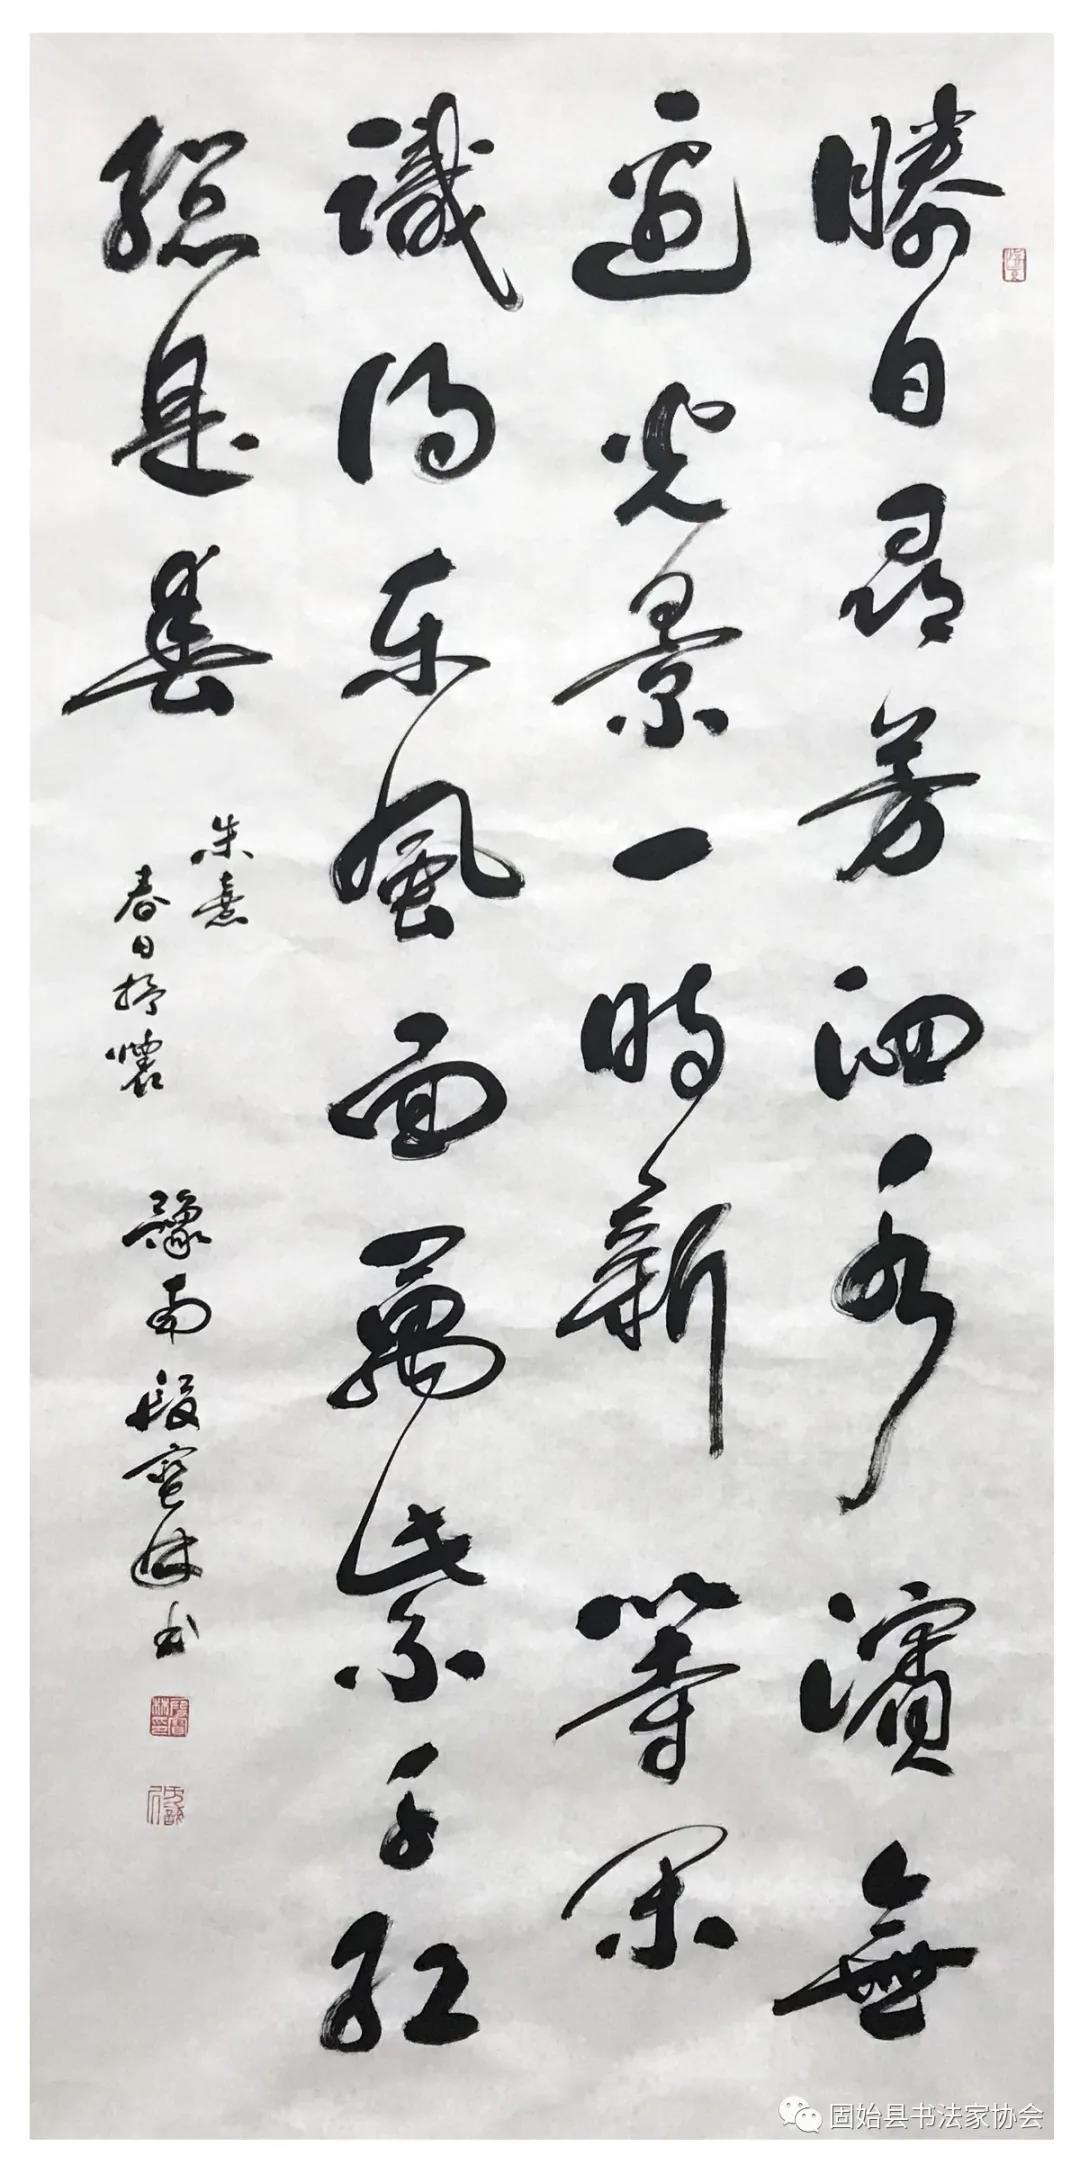 勝日尋芳泗水濱無
邊光景一時新等閑
識得东風面萬紫千红
總是春
朱熹
春日抒懷
豫南段寶林书
段寶林印
固始县书法家协会